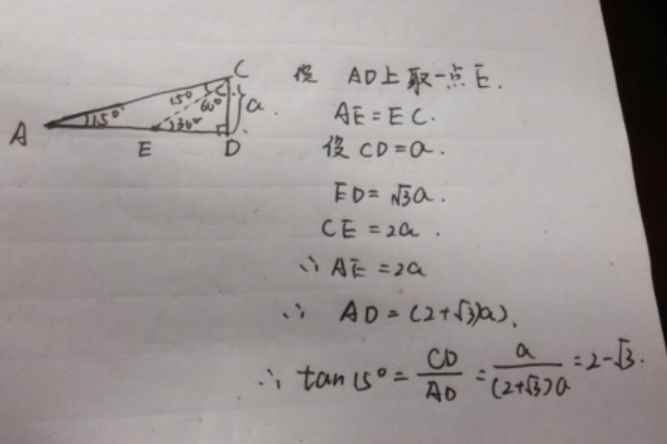 C
15° 60° a
A 15° E 30° D
设 AD上取一点E.
AE=EC.
设 CD=a.
ED=√3a.
CE=2a.
∴ AE=2a
∴ AD=(2+√3)a).
∴ tan15°=CD/AD=a/(2+√3)a=2-√3.